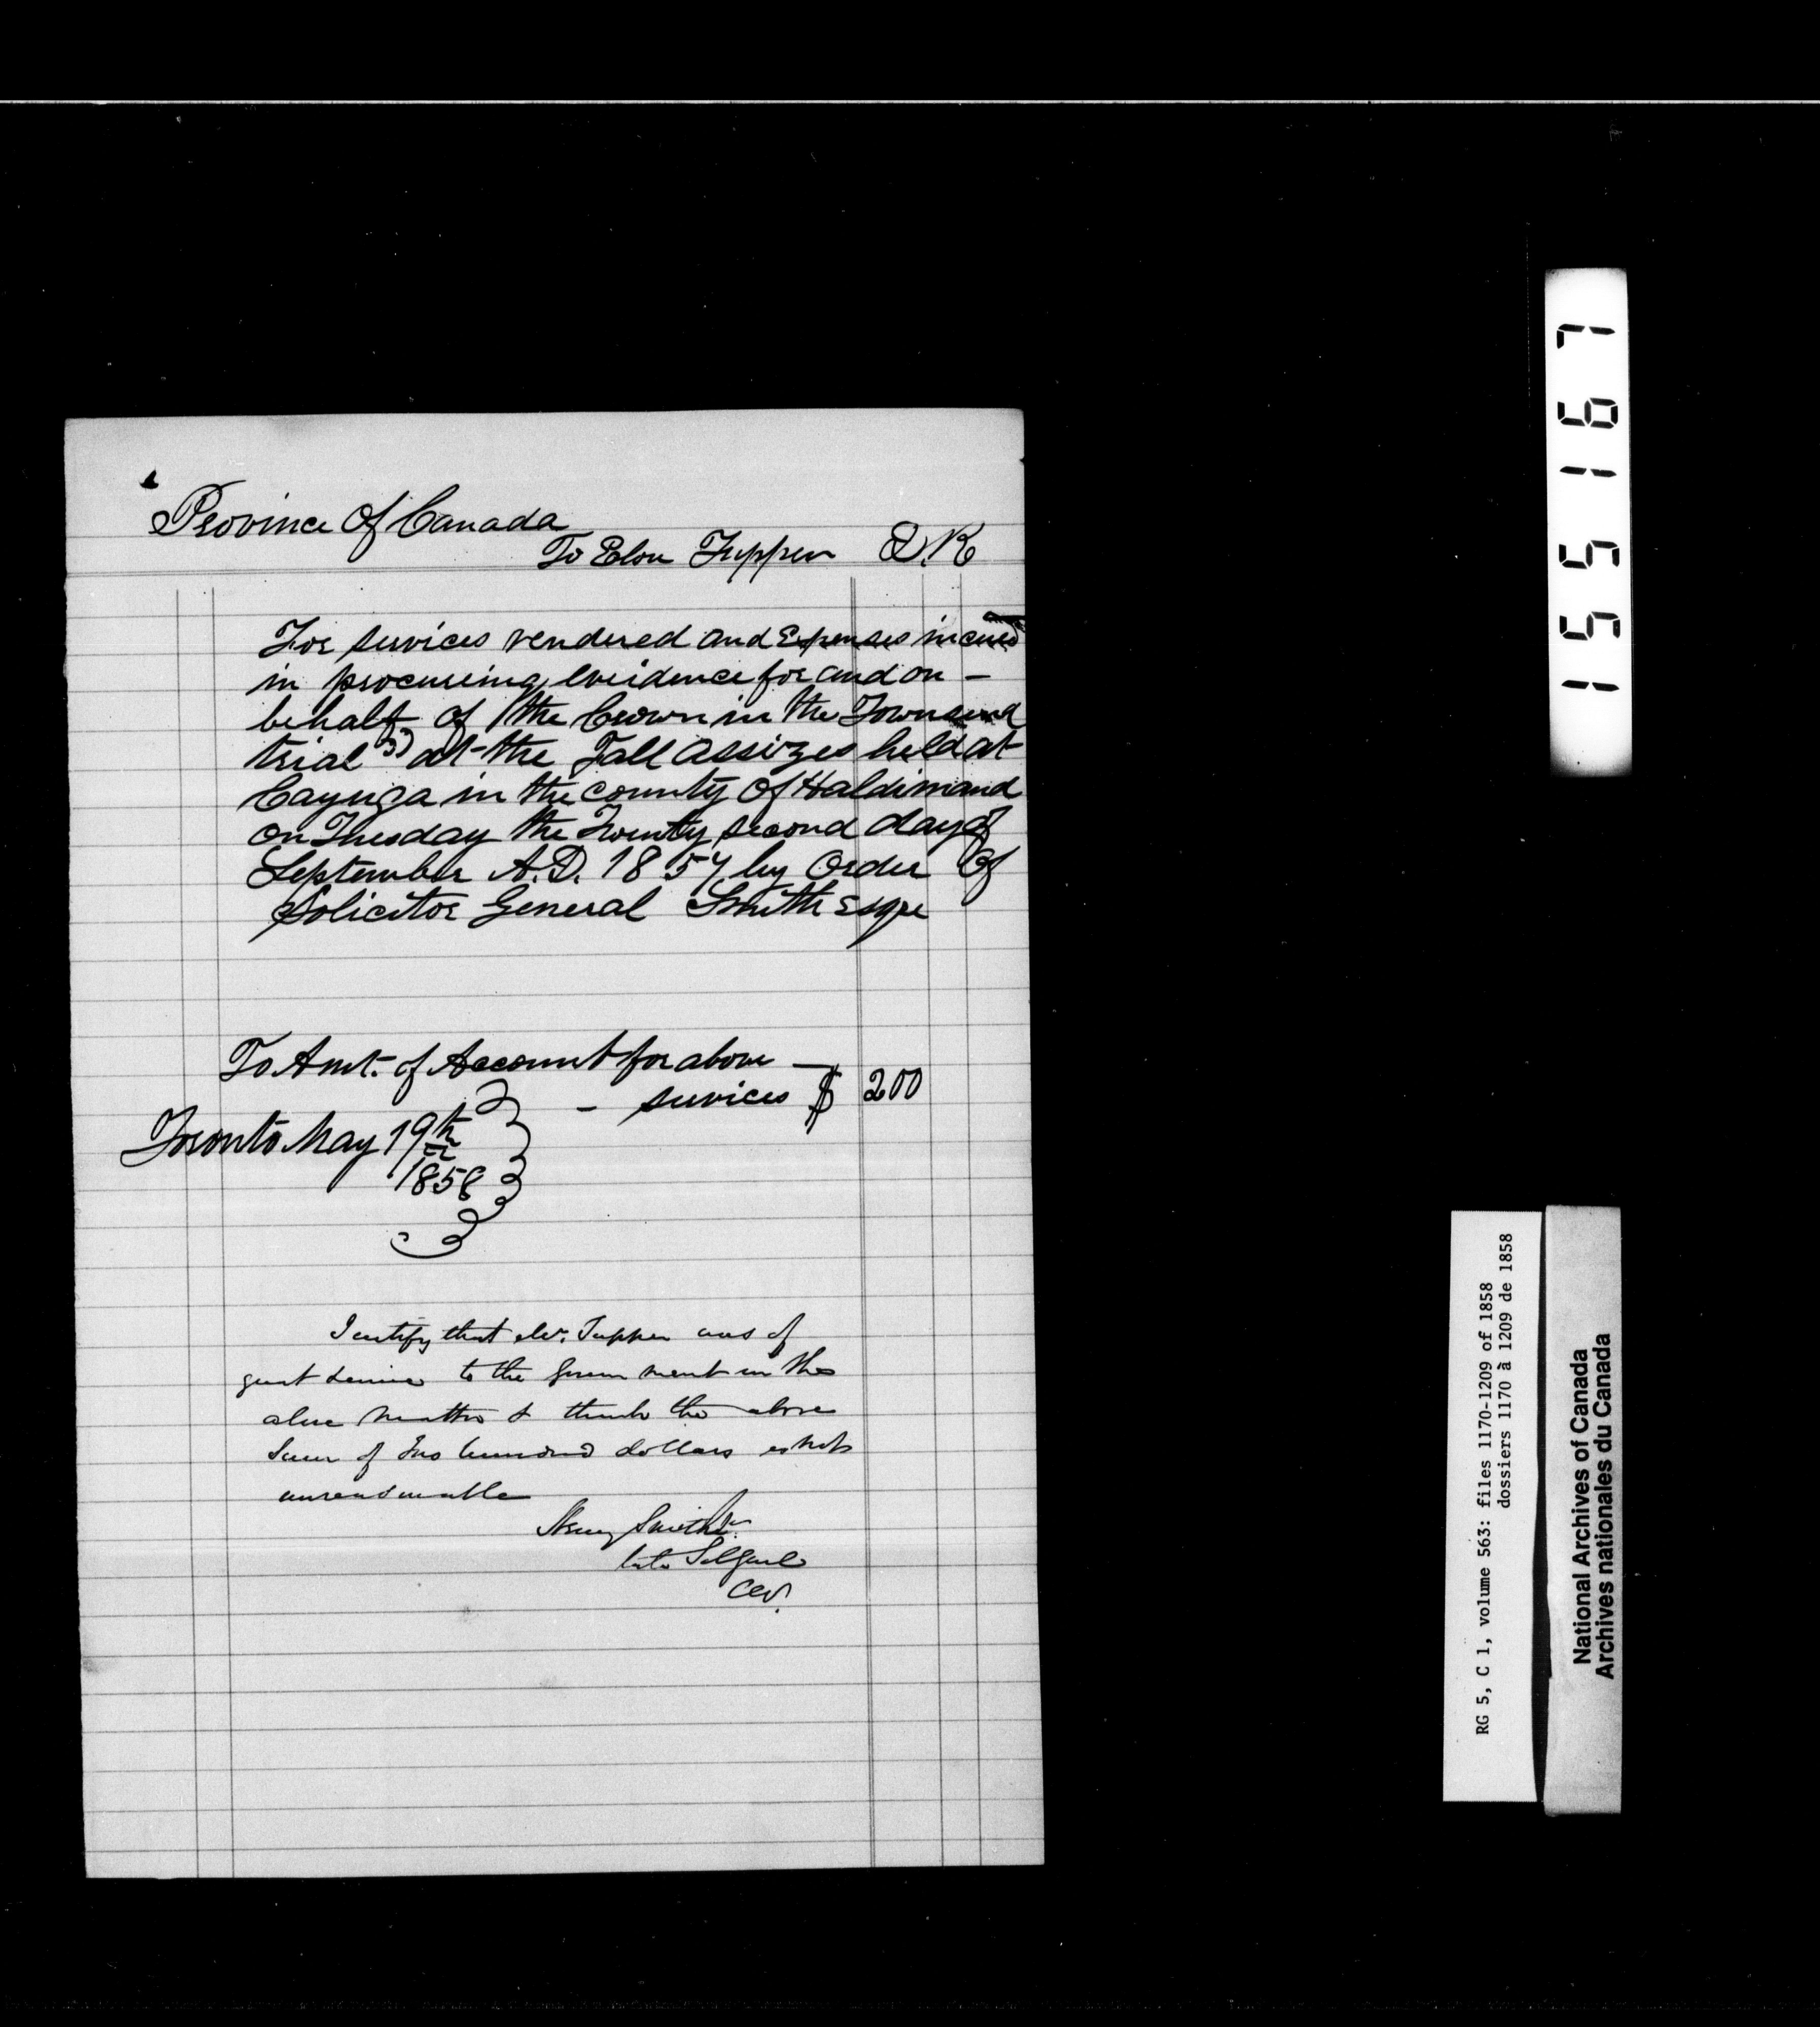 Province Of Canada
To Elon Tupper D.R
For services rendered and Expenses incured
in procureing evidence for and on -
behalf of the Crown in the Townsend
trial" at the Fall assizes held at
Cayuga in the county Of Haldimand
on Tuesday the Twenty second day of
September A.D. 1857 by Order Of
Solicitor General Smith Esqre
To Amt. of Account for above —
- services $ 200
Toronto May 19th
1858
I certify that Mr. Tupper was of
great service to the Government in the
above matter & think the above
sum of Two hundred dollars is not
unreasonable
Henry Smith Jr.
late Sol Genl
CW.
155167
RG 5, C 1, volume 563: files 1170-1209 of 1858
dossiers 1170 à 1209 de 1858
National Archives of Canada
Archives nationales du Canada